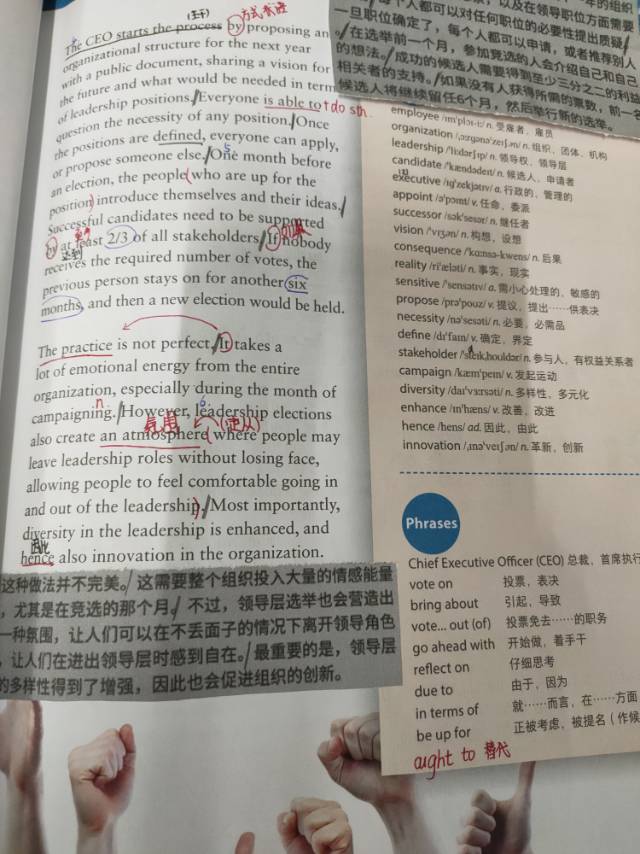 (主干)
方式状语
The CEO starts the process by proposing an
organizational structure for the next year
with a public document, sharing a vision for
the future and what would be needed in term
of leadership positions. Everyone is able to
do sth.
question the necessity of any position. Once
the positions are defined, everyone can apply,
or propose someone else. One month before
an election, the people who are up for the
position introduce themselves and their ideas.
Successful candidates need to be supported
by at least 2/3 of all stakeholders. If nobody
达到
如果
receives the required number of votes, the
previous person stays on for another six
months, and then a new election would be held.
The practice is not perfect. It takes a
lot of emotional energy from the entire
organization, especially during the month of
campaigning. However, leadership elections
n.
氛围
(定从)
also create an atmosphere where people may
leave leadership roles without losing face,
allowing people to feel comfortable going in
and out of the leadership. Most importantly,
diversity in the leadership is enhanced, and
因此
hence also innovation in the organization.
这种做法并不完美。这需要整个组织投入大量的情感能量
，尤其是在竞选的那个月。不过，领导层选举也会营造出
一种氛围，让人们可以在不丢面子的情况下离开领导角色
，让人们在进出领导层时感到自在。最重要的是，领导层
的多样性得到了增强，因此也会促进组织的创新。
，以及在领导职位方面需要
个人都可以对任何职位的必要性提出质疑
一旦职位确定了，每个人都可以申请，或者推荐别人
。在选举前一个月，参加竞选的人会介绍自己和自己
的想法。成功的候选人需要得到至少三分之二的利益
相关者的支持。如果没有人获得所需的票数，前一名
候选人将继续留任6个月，然后举行新的选举。
employee n. 受雇者，雇员
organization n. 组织、团体、机构
leadership n. 领导权、领导层
candidate n. 候选人、申请者
executive a. 行政的、管理的
appoint v. 任命、委派
successor n. 继任者
vision n. 构想，设想
consequence n. 后果
reality n. 事实，现实
sensitive a. 需小心处理的、敏感的
propose v. 提议，提出……供表决
necessity n. 必要，必需品
define v. 确定，界定
stakeholder n. 参与人，有权益关系者
campaign v. 发起运动
diversity n. 多样性，多元化
enhance v. 改善，改进
hence ad. 因此，由此
innovation n. 革新，创新
Phrases
Chief Executive Officer (CEO) 总裁，首席执行
vote on 投票，表决
bring about 引起，导致
vote... out (of) 投票免去……的职务
go ahead with 开始做，着手干
reflect on 仔细思考
due to 由于，因为
in terms of 就……而言，在……方面
be up for 正被考虑，被提名（作候
ought to 替代